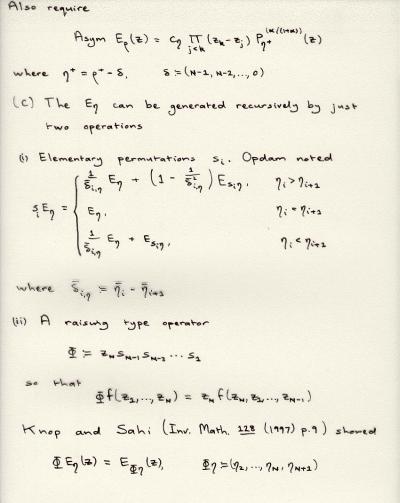 Also require
Asym E_ρ(z) = c_η ∏_{j<k} (z_k - z_j) P_{η^+}^{(α/(1+α))}(z)
where η^+ = ρ^+ - δ, δ := (N-1, N-2, ..., 0)
(c) The E_η can be generated recursively by just
two operations
(i) Elementary permutations s_i. Opdam noted
s_i E_η = { 1/δ̄_{i,η} E_η + (1 - 1/δ̄²_{i,η}) E_{s_iη}, η_i > η_{i+1}
E_η, η_i = η_{i+1}
1/δ̄_{i,η} E_η + E_{s_iη}, η_i < η_{i+1}
where δ̄_{i,η} := η̄_i - η̄_{i+1}
(ii) A raising type operator
Φ := z_N s_{N-1} s_{N-2} ... s_1
so that
Φf(z_1, ..., z_N) = z_N f(z_N, z_1, ..., z_{N-1})
Knop and Sahi (Inv. Math. 128 (1997) p.9) showed
Φ E_η(z) = E_{Φη}(z), Φη := (η_2, ..., η_N, η_N+1)